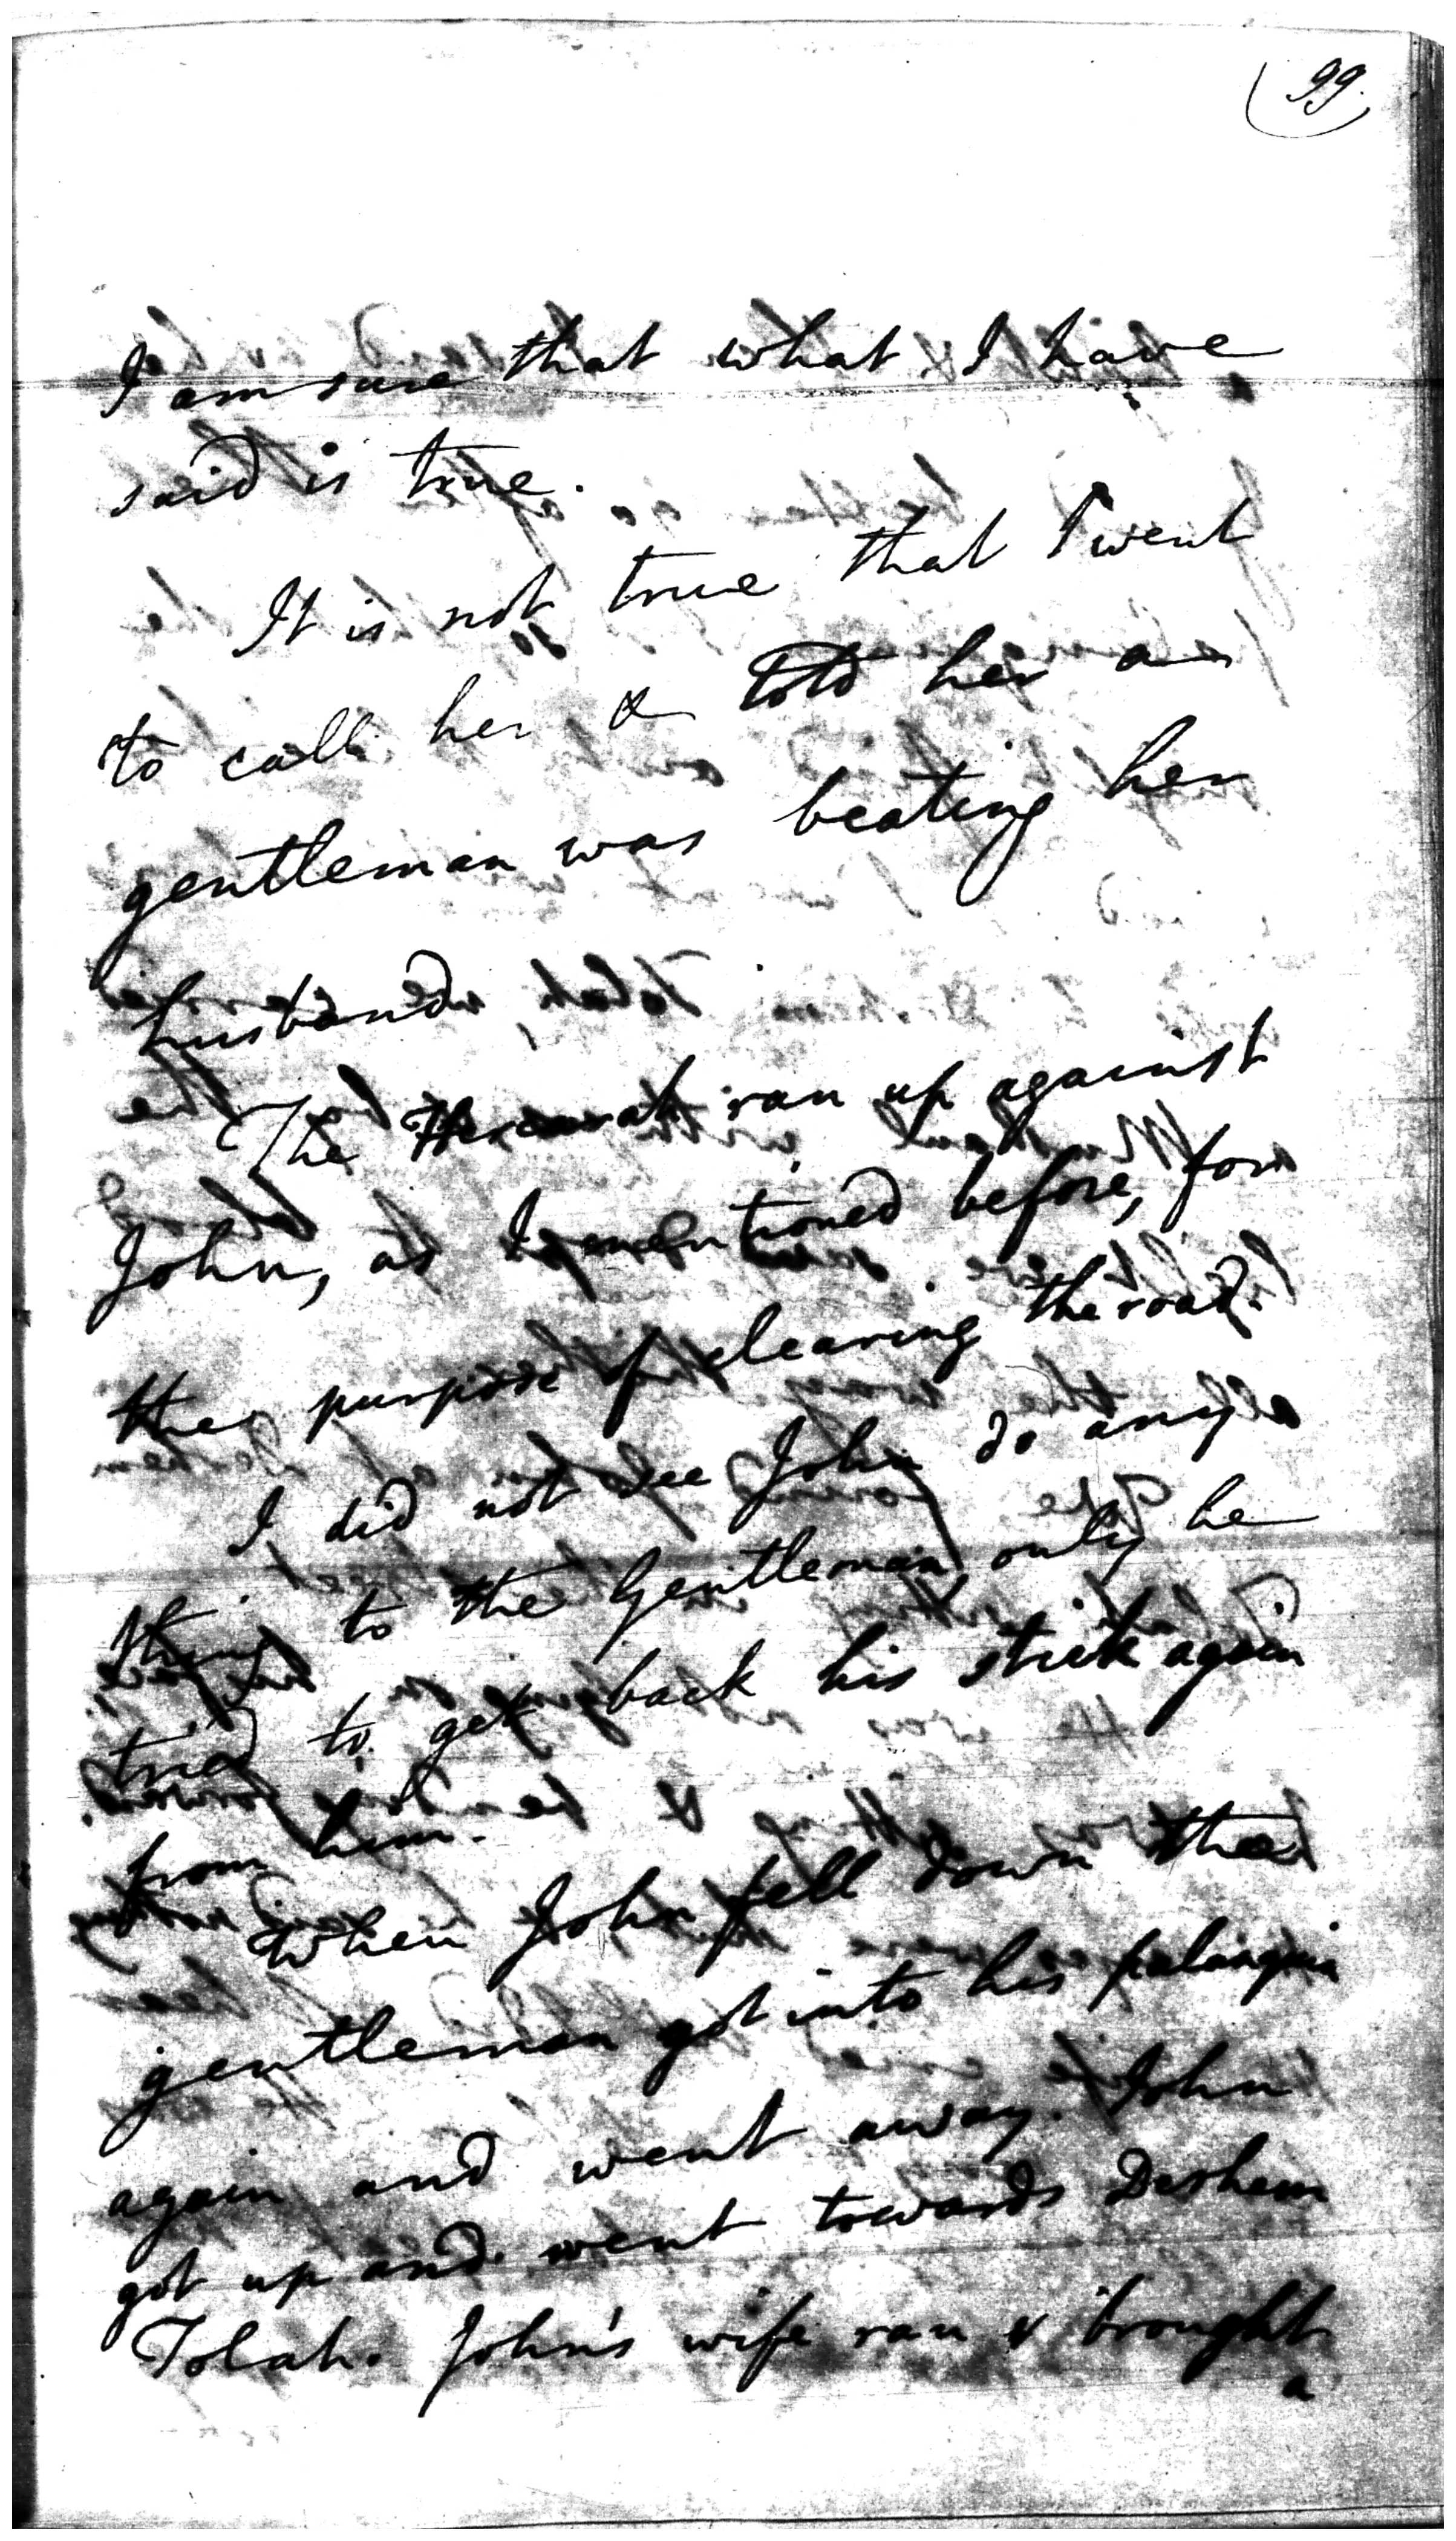 99.
I am sure that what I have
said is true.
It is not true that I went
to call her & told her a
gentleman was beating her
husband
The Hircarrah ran up against
John, as I mentioned before, for
the purpose of clearing the road.
I did not see John do any
thing to the Gentleman only he
tried to get back his stick again
from him.
When John fell down the
gentleman got into his palanquin
again and went away. John
got up and went towards Dershem
Tolah. John's wife ran & brought
a